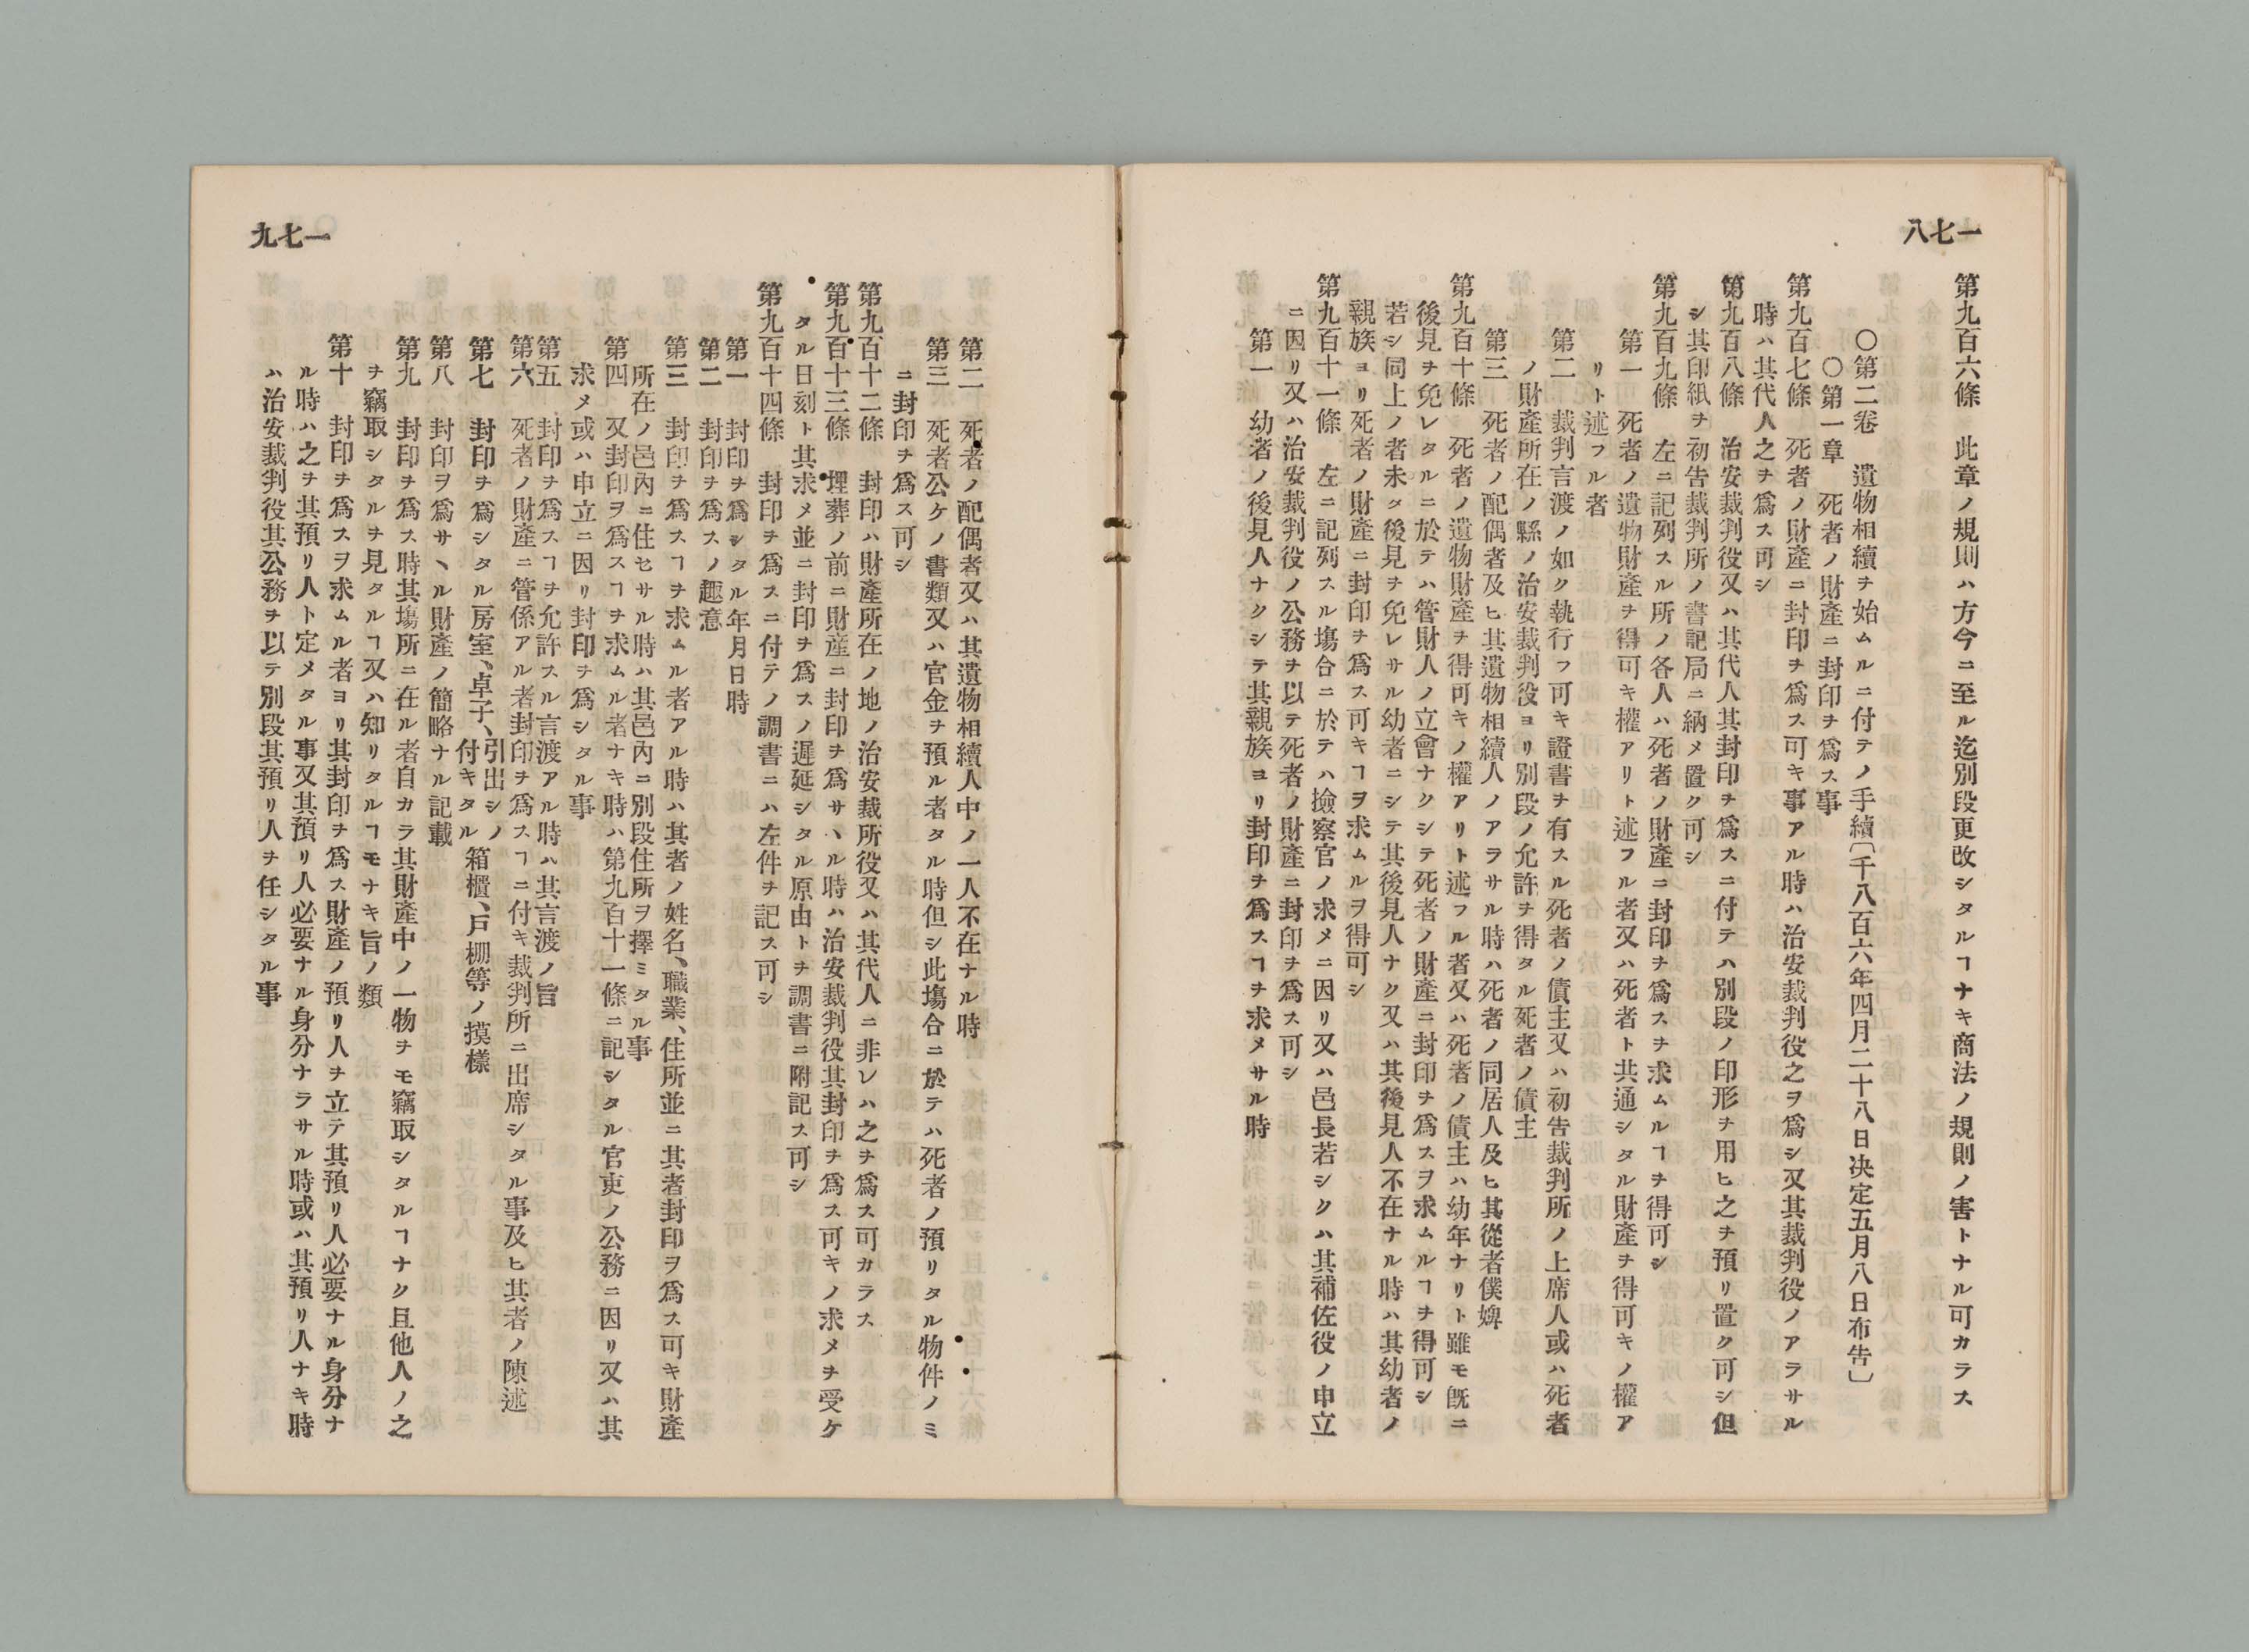 一七八
第九百六條　此章ノ規則ハ方今ニ至ル迄別段更改シタルヿナキ商法ノ規則ノ害トナル可カラス
〇第二卷　遺物相續ヲ始ムルニ付テノ手續〔千八百六年四月二十八日決定五月八日布告〕
〇第一章　死者ノ財產ニ封印ヲ爲ス事
第九百七條　死者ノ財產ニ封印ヲ爲ス可キ事アル時ハ治安裁判役之ヲ爲シ又其裁判役ノアラサル
時ハ其代人之ヲ爲ス可シ
第九百八條　治安裁判役又ハ其代人其封印ヲ爲スニ付テハ別段ノ印形ヲ用ヒ之ヲ預リ置ク可シ但
シ其印紙ヲ初告裁判所ノ書記局ニ納メ置ク可シ
第九百九條　左ニ記列スル所ノ各人ハ死者ノ財產ニ封印ヲ爲スヲ求ムルヿヲ得可シ
第一　死者ノ遺物財產ヲ得可キ權アリト述フル者又ハ死者ト共通シタル財產ヲ得可キノ權ア
リト述フル者
第二　裁判言渡ノ如ク執行フ可キ證書ヲ有スル死者ノ債主又ハ初告裁判所ノ上席人或ハ死者
ノ財產所在ノ縣ノ治安裁判役ヨリ別段ノ允許ヲ得タル死者ノ債主
第三　死者ノ配偶者及ヒ其遺物相續人ノアラサル時ハ死者ノ同居人及ヒ其從者僕婢
第九百十條　死者ノ遺物財產ヲ得可キノ權アリト述フル者又ハ死者ノ債主ハ幼年ナリト雖モ既ニ
後見ヲ免レタルニ於テハ管財人ノ立會ナクシテ死者ノ財產ニ封印ヲ爲スヲ求ムルヿヲ得可シ
若シ同上ノ者未タ後見ヲ免レサル幼者ニシテ其後見人ナク又ハ其後見人不在ナル時ハ其幼者ノ
親族ヨリ死者ノ財產ニ封印ヲ爲ス可キヿヲ求ムルヲ得可シ
第九百十一條　左ニ記列スル塲合ニ於テハ撿察官ノ求メニ因リ又ハ邑長若シクハ其補佐役ノ申立
ニ因リ又ハ治安裁判役ノ公務ヲ以テ死者ノ財產ニ封印ヲ爲ス可シ
第一　幼者ノ後見人ナクシテ其親族ヨリ封印ヲ爲スヿヲ求メサル時
一七九
第二　死者ノ配偶者又ハ其遺物相續人中ノ一人不在ナル時
第三　死者公ケノ書類又ハ官金ヲ預ル者タル時但シ此塲合ニ於テハ死者ノ預リタル物件ノミ
ニ封印ヲ爲ス可シ
第九百十二條　封印ハ財產所在ノ地ノ治安裁所役又ハ其代人ニ非レハ之ヲ爲ス可カラス
第九百十三條　埋葬ノ前ニ財產ニ封印ヲ爲サヽル時ハ治安裁判役其封印ヲ爲ス可キノ求メヲ受ケ
タル日刻ト其求メ並ニ封印ヲ爲スノ遲延シタル原由トヲ調書ニ附記ス可シ
第九百十四條　封印ヲ爲スニ付テノ調書ニハ左件ヲ記ス可シ
第一　封印ヲ爲シタル年月日時
第二　封印ヲ爲スノ趣意
第三　封印ヲ爲スヿヲ求ムル者アル時ハ其者ノ姓名、職業、住所並ニ其者封印ヲ爲ス可キ財產
所在ノ邑內ニ住セサル時ハ其邑內ニ別段住所ヲ擇ミタル事
第四　又封印ヲ爲スヿヲ求ムル者ナキ時ハ第九百十一條ニ記シタル官吏ノ公務ニ因リ又ハ其
求メ或ハ申立ニ因リ封印ヲ爲シタル事
第五　封印ヲ爲スヿヲ允許スル言渡アル時ハ其言渡ノ旨
第六　死者ノ財產ニ管係アル者封印ヲ爲スヿニ付キ裁判所ニ出席シタル事及ヒ其者ノ陳述
第七　封印ヲ爲シタル房室、卓子、引出シノ付キタル箱櫃、戶棚等ノ摸樣
第八　封印ヲ爲サヽル財產ノ簡略ナル記載
第九　封印ヲ爲ス時其塲所ニ在ル者自カラ其財產中ノ一物ヲモ竊取シタルヿナク且他人ノ之
ヲ竊取シタルヲ見タルヿ又ハ知リタルヿモナキ旨ノ類
第十　封印ヲ爲スヲ求ムル者ヨリ其封印ヲ爲ス財產ノ預リ人ヲ立テ其預リ人必要ナル身分ナ
ル時ハ之ヲ其預リ人ト定メタル事又其預リ人必要ナル身分ナラサル時或ハ其預リ人ナキ時
ハ治安裁判役其公務ヲ以テ別段其預リ人ヲ任シタル事